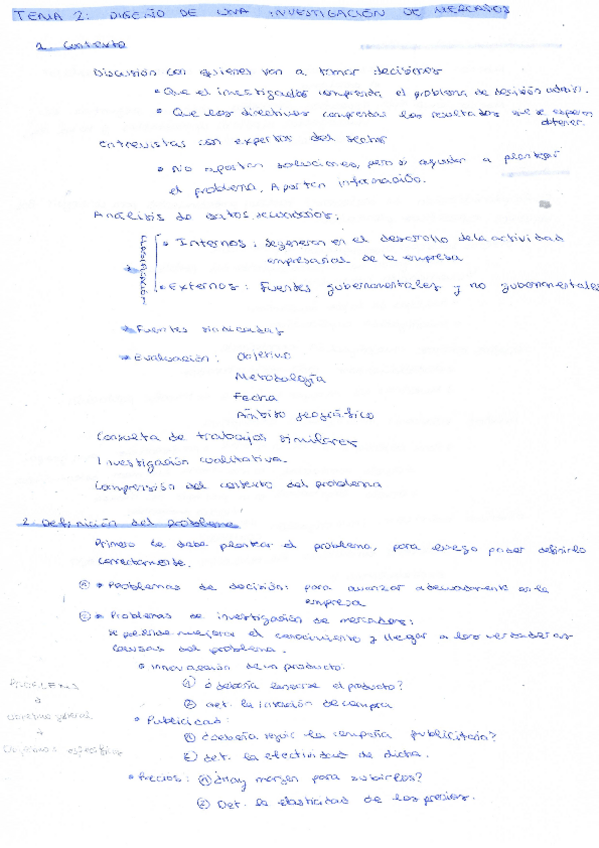 TEMA 2: DISEÑO DE UNA INVESTIGACIÓN DE MERCADOS
1. Contexto
Discusión con quienes van a tomar decisiones
• Que el investigador comprenda el problema de decisión admin.
• Que los directivos comprendan los resultados que se esperan
obtener.
Entrevistas con expertos del sector
• No aportan soluciones, pero sí ayudan a plantear
el problema. Aportan información.
Análisis de datos secundarios:
CLASIFICACIÓN
• Internos: Se generan en el desarrollo de la actividad
empresarial de la empresa
• Externos: Fuentes gubernamentales y no gubernamentales
Fuentes sindicadas
Evaluación: Objetivo
Metodología
Fecha
Ámbito geográfico
Consulta de trabajos similares
Investigación cualitativa.
Comprensión del contexto del problema
2. Definición del problema
Primero se debe plantear el problema, para luego poder definirlo
correctamente.
① • Problemas de decisión: para avanzar adecuadamente en la
empresa
② • Problemas de investigación de mercados:
se pretende mejorar el conocimiento y llegar a las verdaderas
causas del problema.
• Innovación de un producto:
① ¿debería lanzarse el producto?
② Det. la intención de compra
• Publicidad:
① ¿debería seguir la campaña publicitaria?
② det. la efectividad de dicha.
• Precios: ① ¿Hay margen para subirlos?
② Det. la elasticidad de los precios.
PROBLEMA
↓
objetivo general
↓
Objetivos específicos